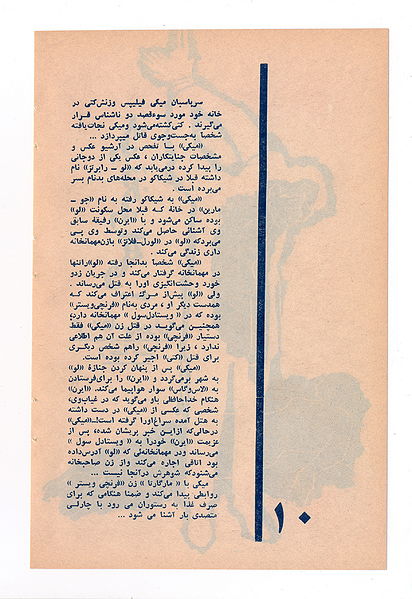 سرپاسبان میکی فیلیپس وزنش‌کتی در
خانه خود مورد سوءقصد دو ناشناس قرار
میگیرند . کتی‌کشته‌می‌شود ومیکی نجات‌یافته
شخصاً به‌جست‌وجوی قاتل میپردازد ...
«میکی» با تفحص در آرشیو عکس و
مشخصات جنایتکاران ، عکس یکی از دوجانی
را پیدا کرده درمی‌یابد که «لو ــ رابرتز» نام
داشته قبلا در شیکاگو در محله‌های بدنام بسر
می‌برده است .
«میکی» به شیکاگو رفته به نام «جو ــ
مارین» در خانه که قبلا محل سکونت «لو»
بوده ساکن می‌شود و با «ایرن» رفیقهٔ سابق
وی آشنائی حاصل می‌کند وتوسط وی پی
می‌بردکه «لو» در «لورل‌ــفلاتز» بازن‌مهمانخانه
داری زندگی می‌کند .
«میکی» شخصاً بدانجا رفته «لو»راتنها
در مهمانخانه گرفتار می‌کند و در جریان زدو
خورد وحشت‌انگیزی اورا به قتل می‌رساند .
ولی «لو» پیش‌از مرگ اعتراف می‌کند که
همدست دیگر او ، مردی به‌نام «فرنچی‌وبستر»
بوده که در « ویستادل‌سول » مهمانخانه دارد،
همچنین می‌گوید در قتل زن «میکی» فقط
دستیار «فرنچی» بوده از علت آن هم اطلاعی
ندارد ، زیرا «فرنچی» راهم شخص دیگری
برای قتل «کتی» اجیر کرده بوده است.
«میکی» پس از پنهان کردن جنازهٔ «لو»
به شهر برمی‌گردد و «ایرن» را برای‌فرستادن
به «لاس‌وگاس» سوار هواپیما می‌کند. «ایرن»
هنگام خداحافظی باو می‌گوید که در غیاب‌وی،
شخصی که عکسی از «میکی» در دست داشته
به هتل آمده سراغ‌اورا گرفته است!ــ«میکی»
درحالی‌که ازاین خبر پریشان شده، پس از
عزیمت «ایرن» خودرا به « ویستادل سول »
می‌رساند ودر مهمانخانه‌ئی که «لو» آدرس‌داده
بود اتاقی اجاره می‌کند واز زن صاحبخانه
می‌شنودکه شوهرش درآنجا نیست ...
میکی با « مارگارتا » زن «فرنچی وبستر »
روابطی پیدا می‌کند و ضمنا هنگامی که برای
صرف غذا به رستوران می رود با چارلی
متصدی بار آشنا می شود ...
۱۰